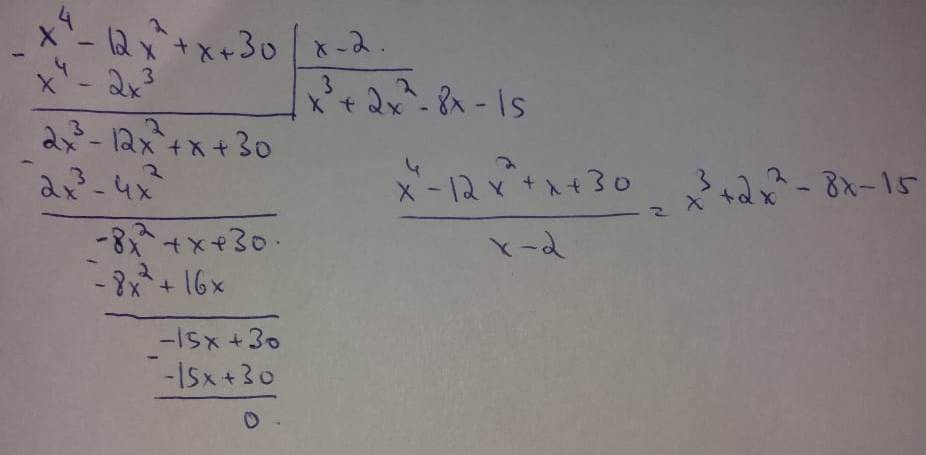 - x⁴ - 12x² + x + 30 | x - 2.
x⁴ - 2x³ | x³ + 2x² - 8x - 15
- 2x³ - 12x² + x + 30
2x³ - 4x²
- -8x² + x + 30.
-8x² + 16x
- -15x + 30
-15x + 30
0.
x⁴ - 12x² + x + 30 / x - 2 = x³ + 2x² - 8x - 15